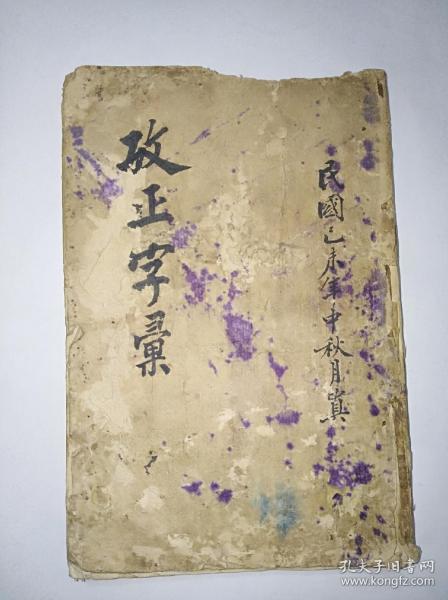 民國己未年中秋月寘
攷正字彙
孔夫子旧书网
www.kongfz.com